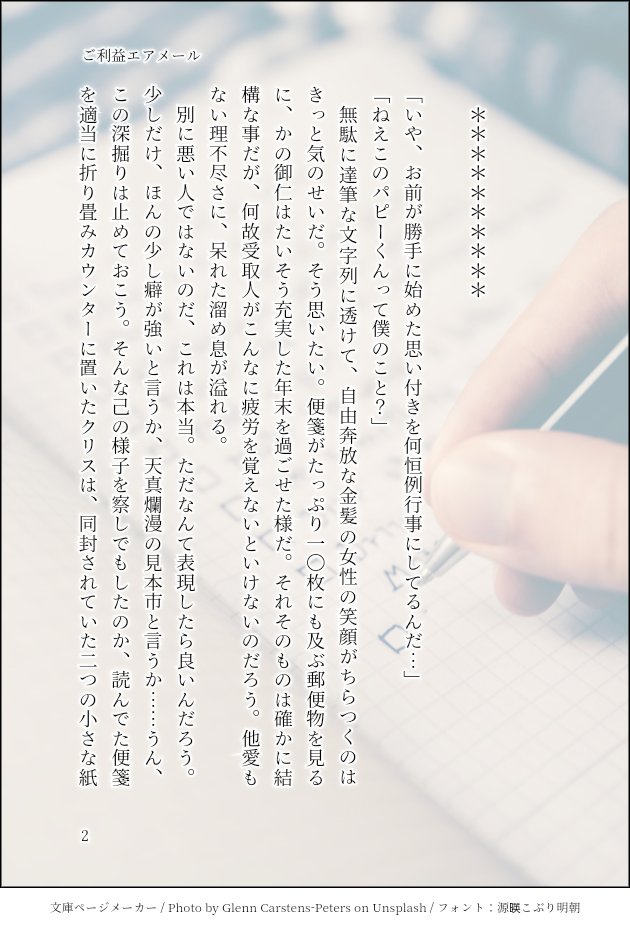 ご利益エアメール
＊＊＊＊＊＊＊＊＊＊＊
「いや、お前が勝手に始めた思い付きを何恒例行事にしてるんだ…」
「ねえこのパピーくんって僕のこと？」
　無駄に達筆な文字列に透けて、自由奔放な金髪の女性の笑顔がちらつくのは
きっと気のせいだ。そう思いたい。便箋がたっぷり一〇枚にも及ぶ郵便物を見る
に、かの御仁はたいそう充実した年末を過ごせた様だ。それそのものは確かに結
構な事だが、何故受取人がこんなに疲労を覚えないといけないのだろう。他愛も
ない理不尽さに、呆れた溜め息が溢れる。
　別に悪い人ではないのだ、これは本当。ただなんて表現したら良いんだろう。
少しだけ、ほんの少し癖が強いと言うか、天真爛漫の見本市と言うか……うん、
この深掘りは止めておこう。そんな己の様子を察しでもしたのか、読んでた便箋
を適当に折り畳みカウンターに置いたクリスは、同封されていた二つの小さな紙
2
文庫ページメーカー / Photo by Glenn Carstens-Peters on Unsplash / フォント：源暎こぶり明朝